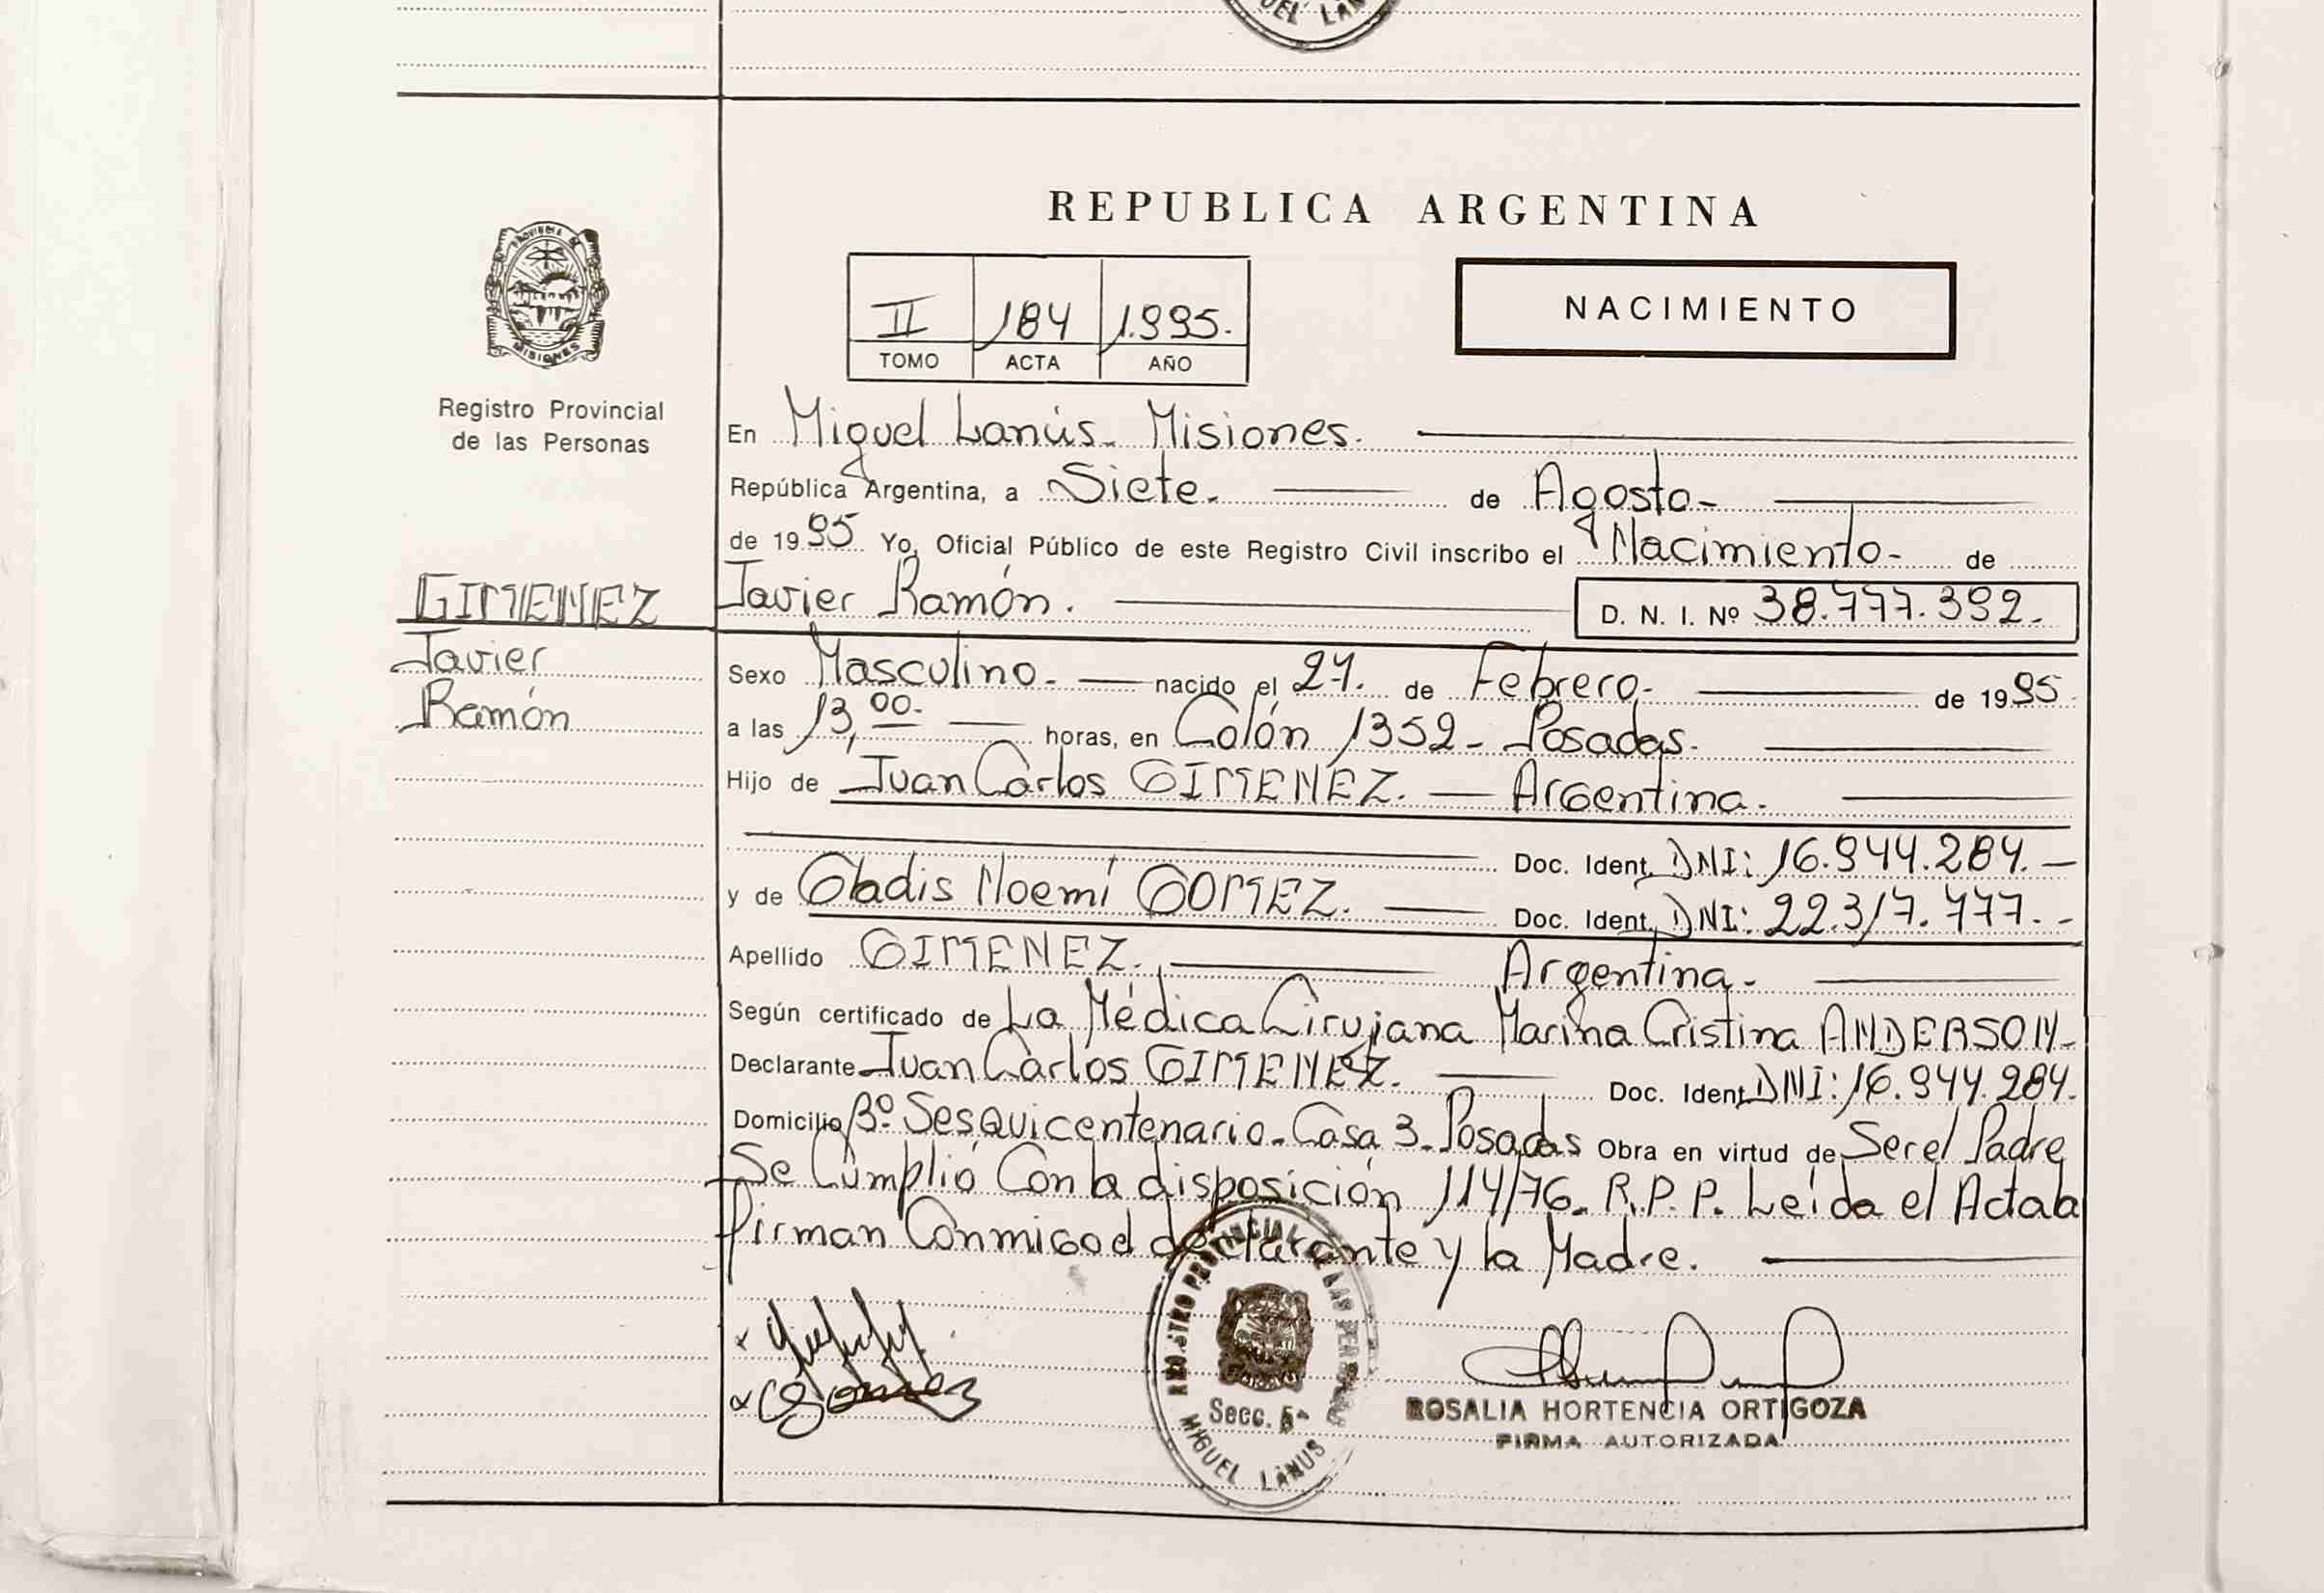 UEL LAN
REPUBLICA ARGENTINA
PROVINCIA DE
MISIONES
Registro Provincial
de las Personas
II 184 1.995.
TOMO ACTA AÑO
NACIMIENTO
En Miguel Lanús - Misiones.
República Argentina, a Siete. de Agosto-
de 1995 Yo, Oficial Público de este Registro Civil inscribo el Nacimiento- de
GIMENEZ
Javier
Ramón
Javier Ramón. D. N. I. Nº 38.777.392.
Sexo Masculino. nacido el 27. de Febrero. de 1995.
a las 13,00. horas, en Colón 1352 - Posadas.
Hijo de Juan Carlos GIMENEZ. — Argentina.
Doc. Ident. DNI: 16.944.284. —
y de Gladis Noemí GOMEZ. — Doc. Ident. DNI: 22.317.777. -
Apellido GIMENEZ. Argentina.
Según certificado de La Médica Cirujana Marina Cristina ANDERSON-
Declarante Juan Carlos GIMENEZ. — Doc. Ident. DNI: 16.944.284.
Domicilio Bº. Sesquicentenario - Casa 3 - Posadas Obra en virtud de Ser el Padre
Se Cumplió Con la disposición 114/76. R.P.P. Leída el Acta la
firman Conmigo el declarante y la Madre.
REGISTRO PROVINCIAL DE LAS PERSONAS
Secc. 5ª
MIGUEL LANUS
ROSALIA HORTENCIA ORTIGOZA
FIRMA AUTORIZADA